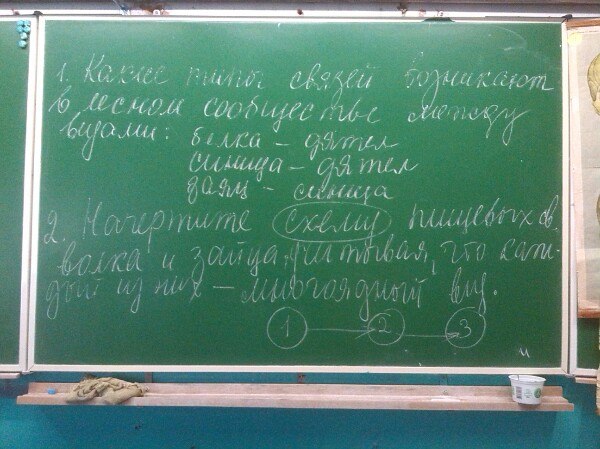 1. Какие типы связей возникают
в лесном сообществе между
видами: белка – дятел
синица – дятел
заяц – синица
2. Начертите схему пищевых св.
волка и зайца, учитывая, что каж-
дый из них – многоядный вид.
1 2 3